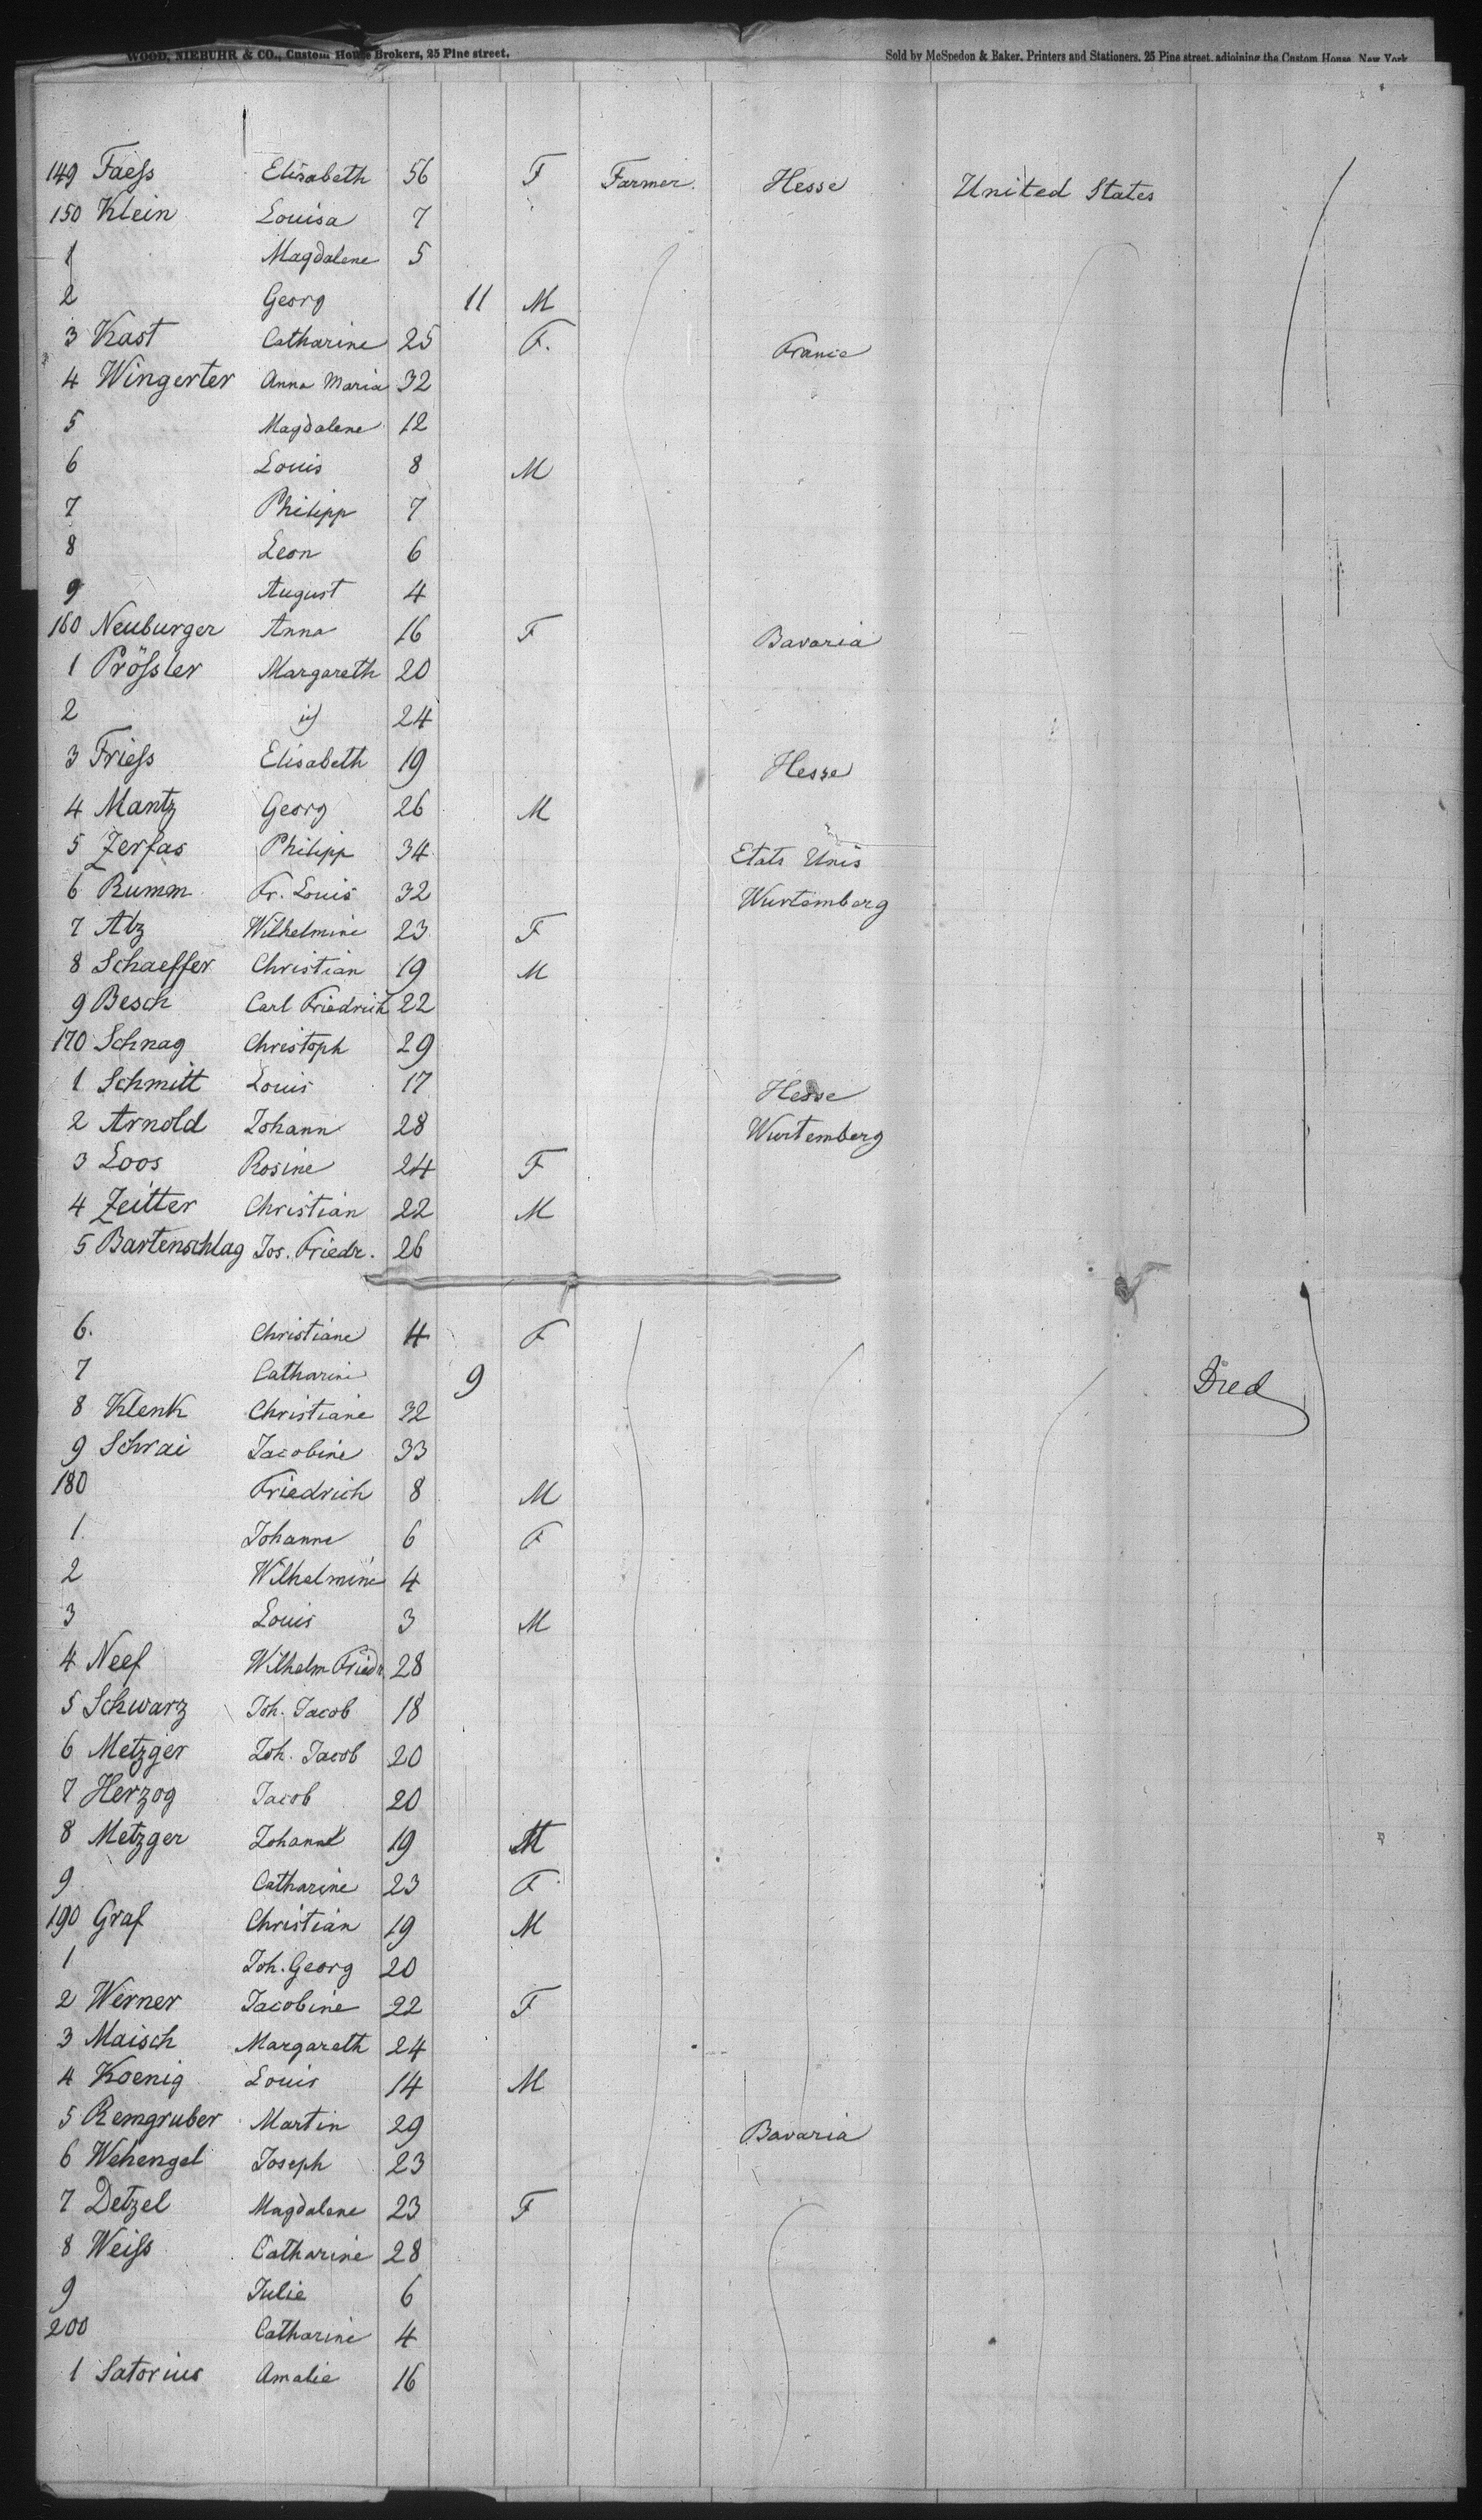 WOOD, NIEBUHR & CO., Custom House Brokers, 25 Pine street. Sold by McSpedon & Baker, Printers and Stationers, 25 Pine street, adjoining the Custom House, New York
149 Faeſs Elisabeth 56 F Farmer. Hesse United States
150 Klein Louisa 7
1 Magdalene 5
2 Georg 11 M
3 Kast Catharine 25 F. France
4 Wingerter Anna Maria 32
5 Magdalene 12
6 Louis 8 M
7 Philipp 7
8 Leon 6
9 August 4
160 Neuburger Anna 16 F Bavaria
1 Pröſsler Margareth 20
2 id 24
3 Frieſs Elisabeth 19 Hesse
4 Mantz Georg 26 M
5 Zerfas Philipp 34 Etats Unis
6 Rumm Fr. Louis 32 Wurtemberg
7 Atz Wilhelmine 23 F
8 Schaeffer Christian 19 M
9 Besch Carl Friedrich 22
170 Schnag Christoph 29
1 Schmitt Louis 17 Hesse
2 Arnold Johann 28 Wurtemberg
3 Loos Rosine 24 F
4 Zeitter Christian 22 M
5 Bartenschlag Jos. Friedr. 26
6. Christiane 4 F
7 Catharine 9 Died
8 Klenk Christiane 32
9 Schrai Jacobine 33
180 Friedrich 8 M
1 Johanne 6 F
2 Wilhelmine 4
3 Louis 3 M
4 Neef Wilhelm Friedr. 28
5 Schwarz Joh. Jacob 18
6 Metzger Joh. Jacob 20
7 Herzog Jacob 20
8 Metzger Johann 19 M
9 Catharine 23 F
190 Graf Christian 19 M
1 Joh. Georg 20
2 Werner Jacobine 22 F
3 Maisch Margareth 24
4 Koenig Louis 14 M
5 Remgruber Martin 29 Bavaria
6 Wehengel Joseph 23
7 Detzel Magdalene 23 F
8 Weiſs Catharine 28
9 Julie 6
200 Catharine 4
1 Satorius Amalie 16